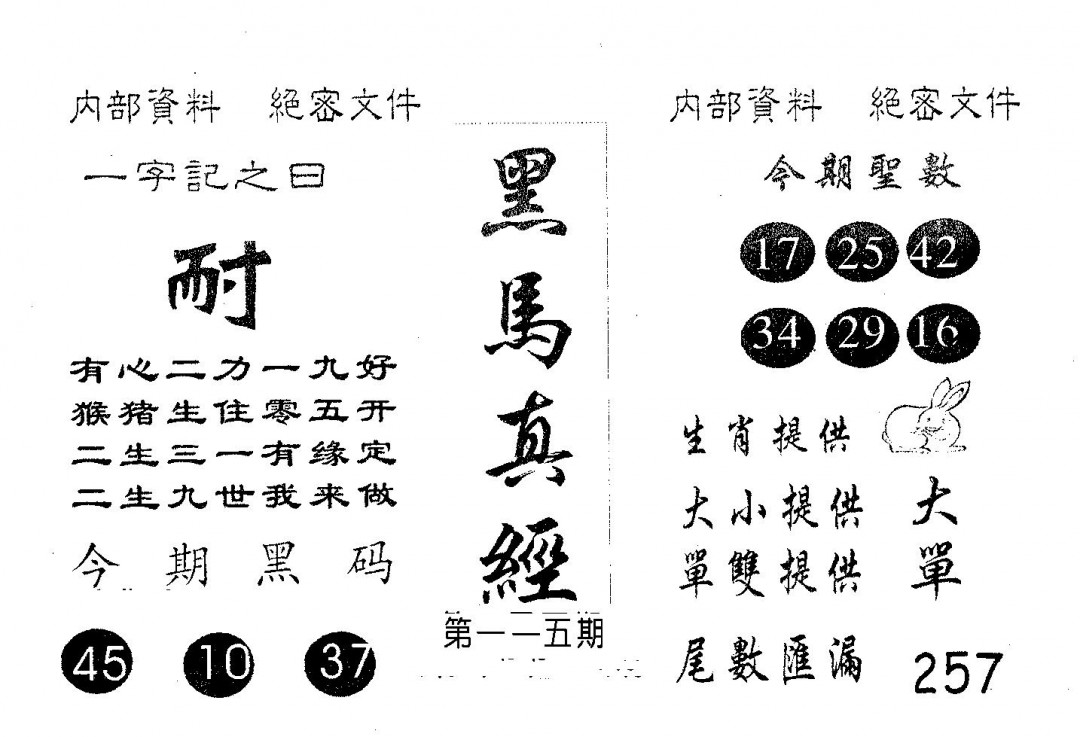 内部資料 絕密文件
一字記之曰
耐
有心二力一九好
猴猪生住零五开
二生三一有缘定
二生九世我来做
今期黑码
45 10 37
黑馬真經
第一一五期
内部資料 絕密文件
今期聖數
17 25 42
34 29 16
生肖提供
大小提供 大
單雙提供 單
尾數匯漏 257